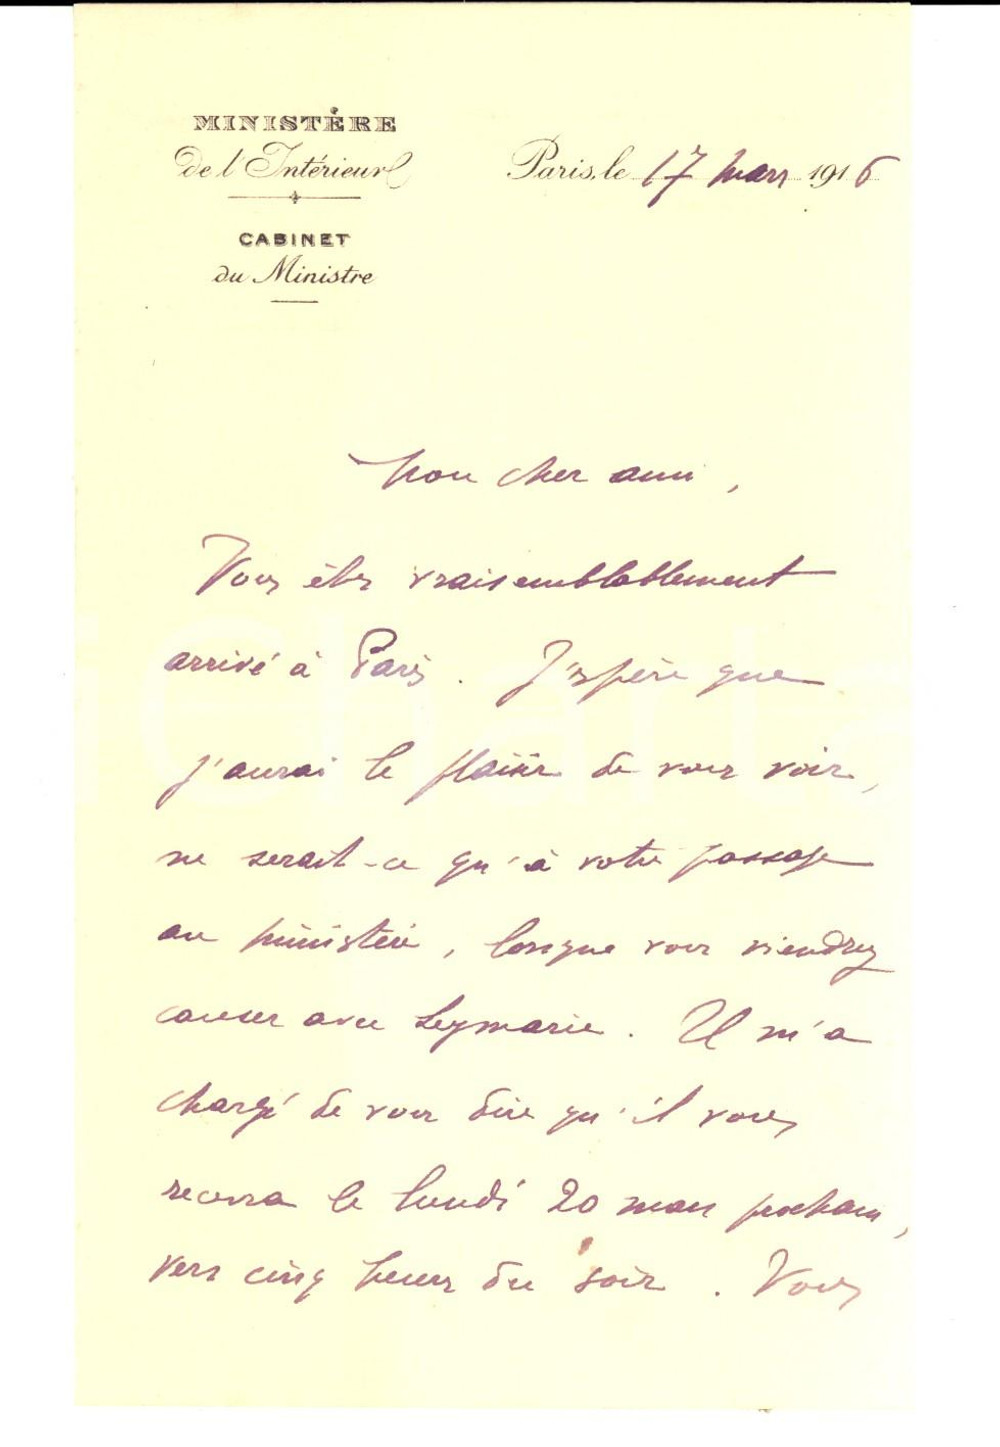 MINISTÈRE
de l'Intérieur
CABINET
du Ministre
Paris, le 17 mars 1916
Mon cher ami,
Vous êtes vraisemblablement
arrivé à Paris. J'espère que
j'aurai le plaisir de vous voir,
ne serait-ce qu'à votre passage
au ministère, lorsque vous viendrez
causer avec Leymarie. Il m'a
chargé de vous dire qu'il vous
recevra le lundi 20 mars prochain,
vers cinq heures du soir. Vous